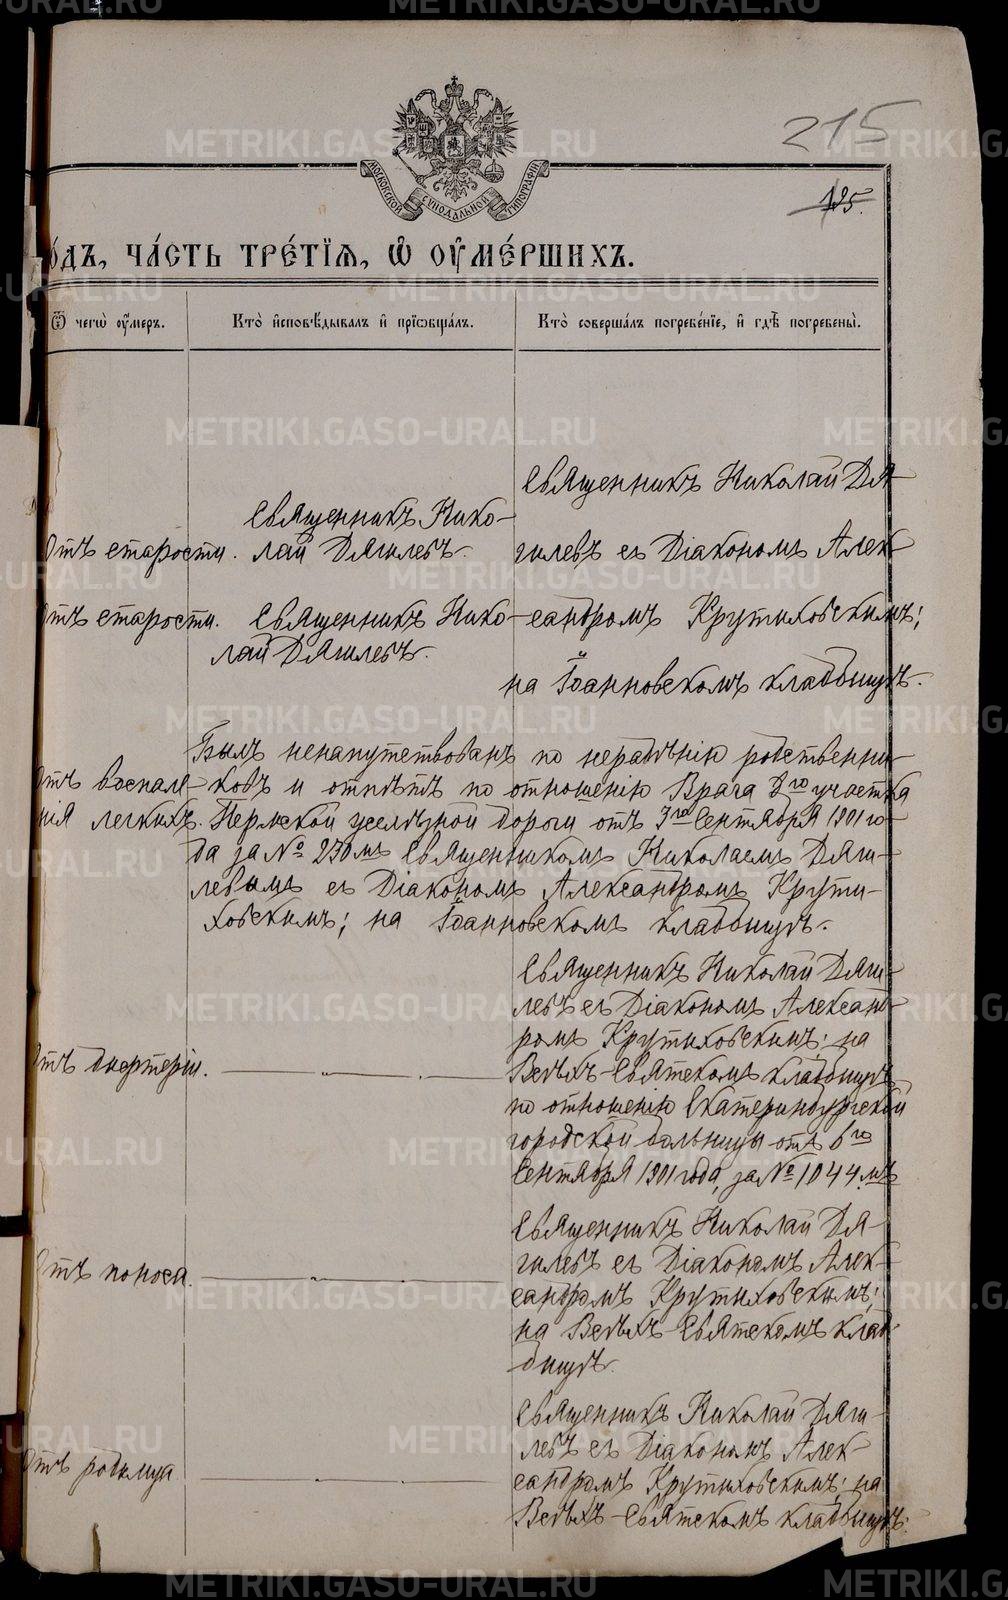 215
125.
МОСКОВСКОЙ СѴНОДАЛЬНОЙ ТИПОГРАФІИ
о́дъ, ча́сть тре́тїѧ, ѡ҆ ᲂу҆ме́ршихъ.
Ѿ чегѡ̀ ᲂу҆́меръ.
Кто̀ и҆сповѣ́дывалъ и҆ прїѡбща́лъ.
Кто̀ соверша́лъ погребе́нїе, и҆ гдѣ̀ погребены̀.
Отъ старости.
Священникъ Нико-
лай Дягилевъ.
Священникъ Николай Дя-
гилевъ съ Діакономъ Алек-
сандромъ Крутиховскимъ;
на Іоанновскомъ кладбищѣ.
Отъ старости.
Священникъ Нико-
лай Дягилевъ.
Отъ воспале-
нія легкихъ.
Былъ ненапутствованъ по нерадѣнію родственни-
ковъ и отпѣтъ по отношенію Врача 8го участка
Пермской желѣзной дороги отъ 3го Сентября 1901 го-
да за № 230мъ Священникомъ Николаемъ Дяги-
левымъ съ Діакономъ Александромъ Крути-
ховскимъ; на Іоанновскомъ кладбищѣ.
Отъ диѳтеріи.
Священникъ Николай Дяги-
левъ съ Діакономъ Александ-
ромъ Крутиховскимъ; на
Всѣхъ-Святскомъ кладбищѣ
по отношенію Екатеринбургской
городской больницы отъ 6го
Сентября 1901 года, за № 1044мъ
Отъ поноса.
Священникъ Николай Дя-
гилевъ съ Діакономъ Алек-
сандромъ Крутиховскимъ;
на Всѣхъ-Святскомъ клад-
бищѣ.
Отъ родимца
Священникъ Николай Дяги-
левъ съ Діакономъ Алек-
сандромъ Крутиховскимъ; на
Всѣхъ-Святскомъ кладбищѣ.
METRIKI.GASO-URAL.RU